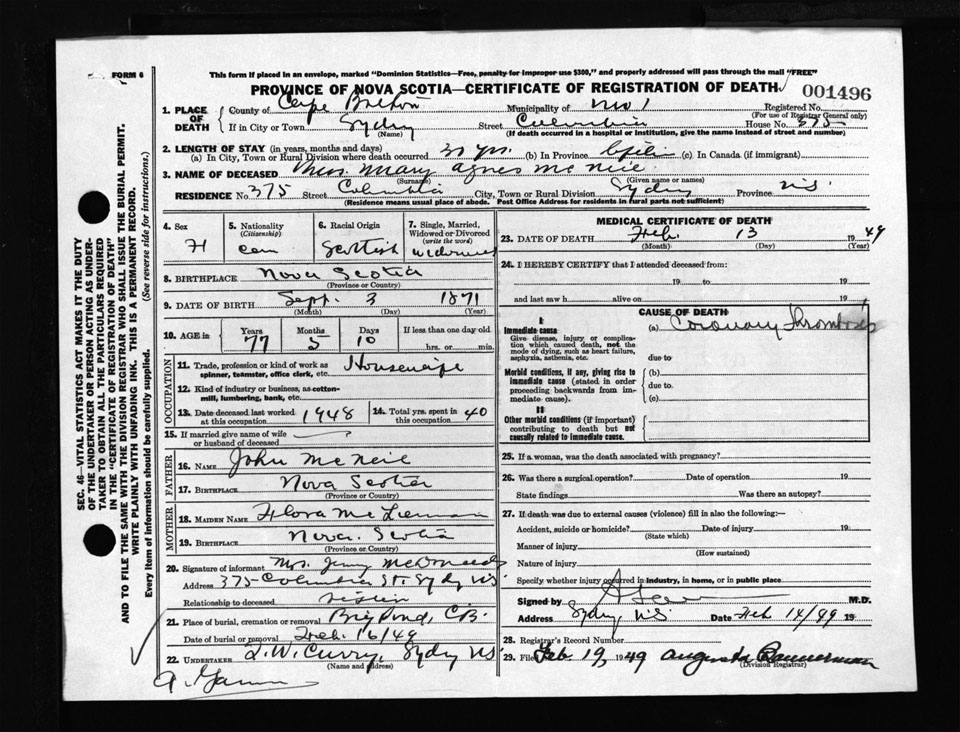 FORM 6
This form if placed in an envelope, marked "Dominion Statistics—Free, penalty for improper use $300," and properly addressed will pass through the mail "FREE"
PROVINCE OF NOVA SCOTIA—CERTIFICATE OF REGISTRATION OF DEATH
001496
1. PLACE OF DEATH
County of Cape Breton Municipality of No 1 Registered No.
(For use of Registrar General only)
If in City or Town Sydney Street Columbia House No. 375
(Name) (If death occurred in a hospital or institution, give the name instead of street and number)
2. LENGTH OF STAY (in years, months and days)
(a) In City, Town or Rural Division where death occurred 30 yrs. (b) In Province Life (c) In Canada (if immigrant)
3. NAME OF DECEASED Mrs. Mary Agnes Mc Neil
(Surname) (Given name or names)
RESIDENCE No. 375 Street Columbia City, Town or Rural Division Sydney Province N.S.
(Residence means usual place of abode. Post Office Address for residents in rural parts not sufficient)
4. Sex
F
5. Nationality
(Citizenship)
Can
6. Racial Origin
Scottish
7. Single, Married, Widowed or Divorced
(write the word)
Widowed
8. BIRTHPLACE Nova Scotia
(Province or Country)
9. DATE OF BIRTH Sept. 3 1871
(Month) (Day) (Year)
10. AGE in
Years 77
Months 5
Days 10
If less than one day old
hrs. or min.
OCCUPATION
11. Trade, profession or kind of work as spinner, teamster, office clerk, etc. Housewife
12. Kind of industry or business, as cotton-mill, lumbering, bank, etc.
13. Date deceased last worked at this occupation 1948
14. Total yrs. spent in this occupation 40
15. If married give name of wife or husband of deceased
FATHER
16. NAME John Mc Neil
17. BIRTHPLACE Nova Scotia
(Province or Country)
MOTHER
18. MAIDEN NAME Flora Mc Lennan
19. BIRTHPLACE Nova. Scotia
(Province or Country)
20. Signature of informant Mrs. Jenny McDonald
Address 375 Columbia St. Sydney N.S
Relationship to deceased sister
21. Place of burial, cremation or removal Big Pond, C.B.
Date of burial or removal Feb. 16/49
22. UNDERTAKER T. W. Curry, Sydney N.S.
(Name and address)
MEDICAL CERTIFICATE OF DEATH
23. DATE OF DEATH Feb. 13 1949
(Month) (Day) (Year)
24. I HEREBY CERTIFY that I attended deceased from:
19 to 19
and last saw h alive on 19
CAUSE OF DEATH
I
Immediate cause (a) Coronary Thrombosis
Give disease, injury or complication which caused death, not the mode of dying, such as heart failure, asphyxia, asthenia, etc.
due to
Morbid conditions, if any, giving rise to immediate cause (stated in order proceeding backwards from immediate cause).
(b)
due to.
(c)
II
Other morbid conditions (if important) contributing to death but not causally related to immediate cause.
25. If a woman, was the death associated with pregnancy?
26. Was there a surgical operation? Date of operation 19
State findings Was there an autopsy?
27. If death was due to external causes (violence) fill in also the following:—
Accident, suicide or homicide? Date of injury 19
(State which)
Manner of injury
(How sustained)
Nature of injury
Specify whether injury occurred in industry, in home, or in public place
Signed by M.D.
Address Sydney, N.S Date Feb 14/49 19
28. Registrar's Record Number
29. Filed Feb. 19, 1949 Augusta Bannerman
(Division Registrar)
SEC. 46—VITAL STATISTICS ACT MAKES IT THE DUTY
OF THE UNDERTAKER OR PERSON ACTING AS UNDER-
TAKER TO OBTAIN ALL THE PARTICULARS REQUIRED
IN THE "CERTIFICATE OF REGISTRATION OF DEATH"
AND TO FILE THE SAME WITH THE DIVISION REGISTRAR WHO SHALL ISSUE THE BURIAL PERMIT.
WRITE PLAINLY WITH UNFADING INK. THIS IS A PERMANENT RECORD.
Every item of information should be carefully supplied. (See reverse side for instructions.)